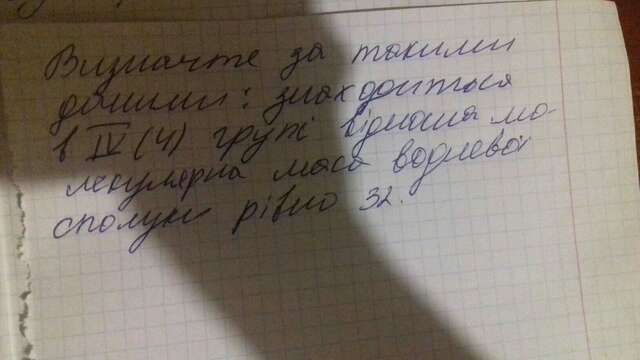 Визначте за такими
даними: знаходиться
в IV (4) групі відносна мо-
лекулярна маса водневої
сполуки рівно 32.